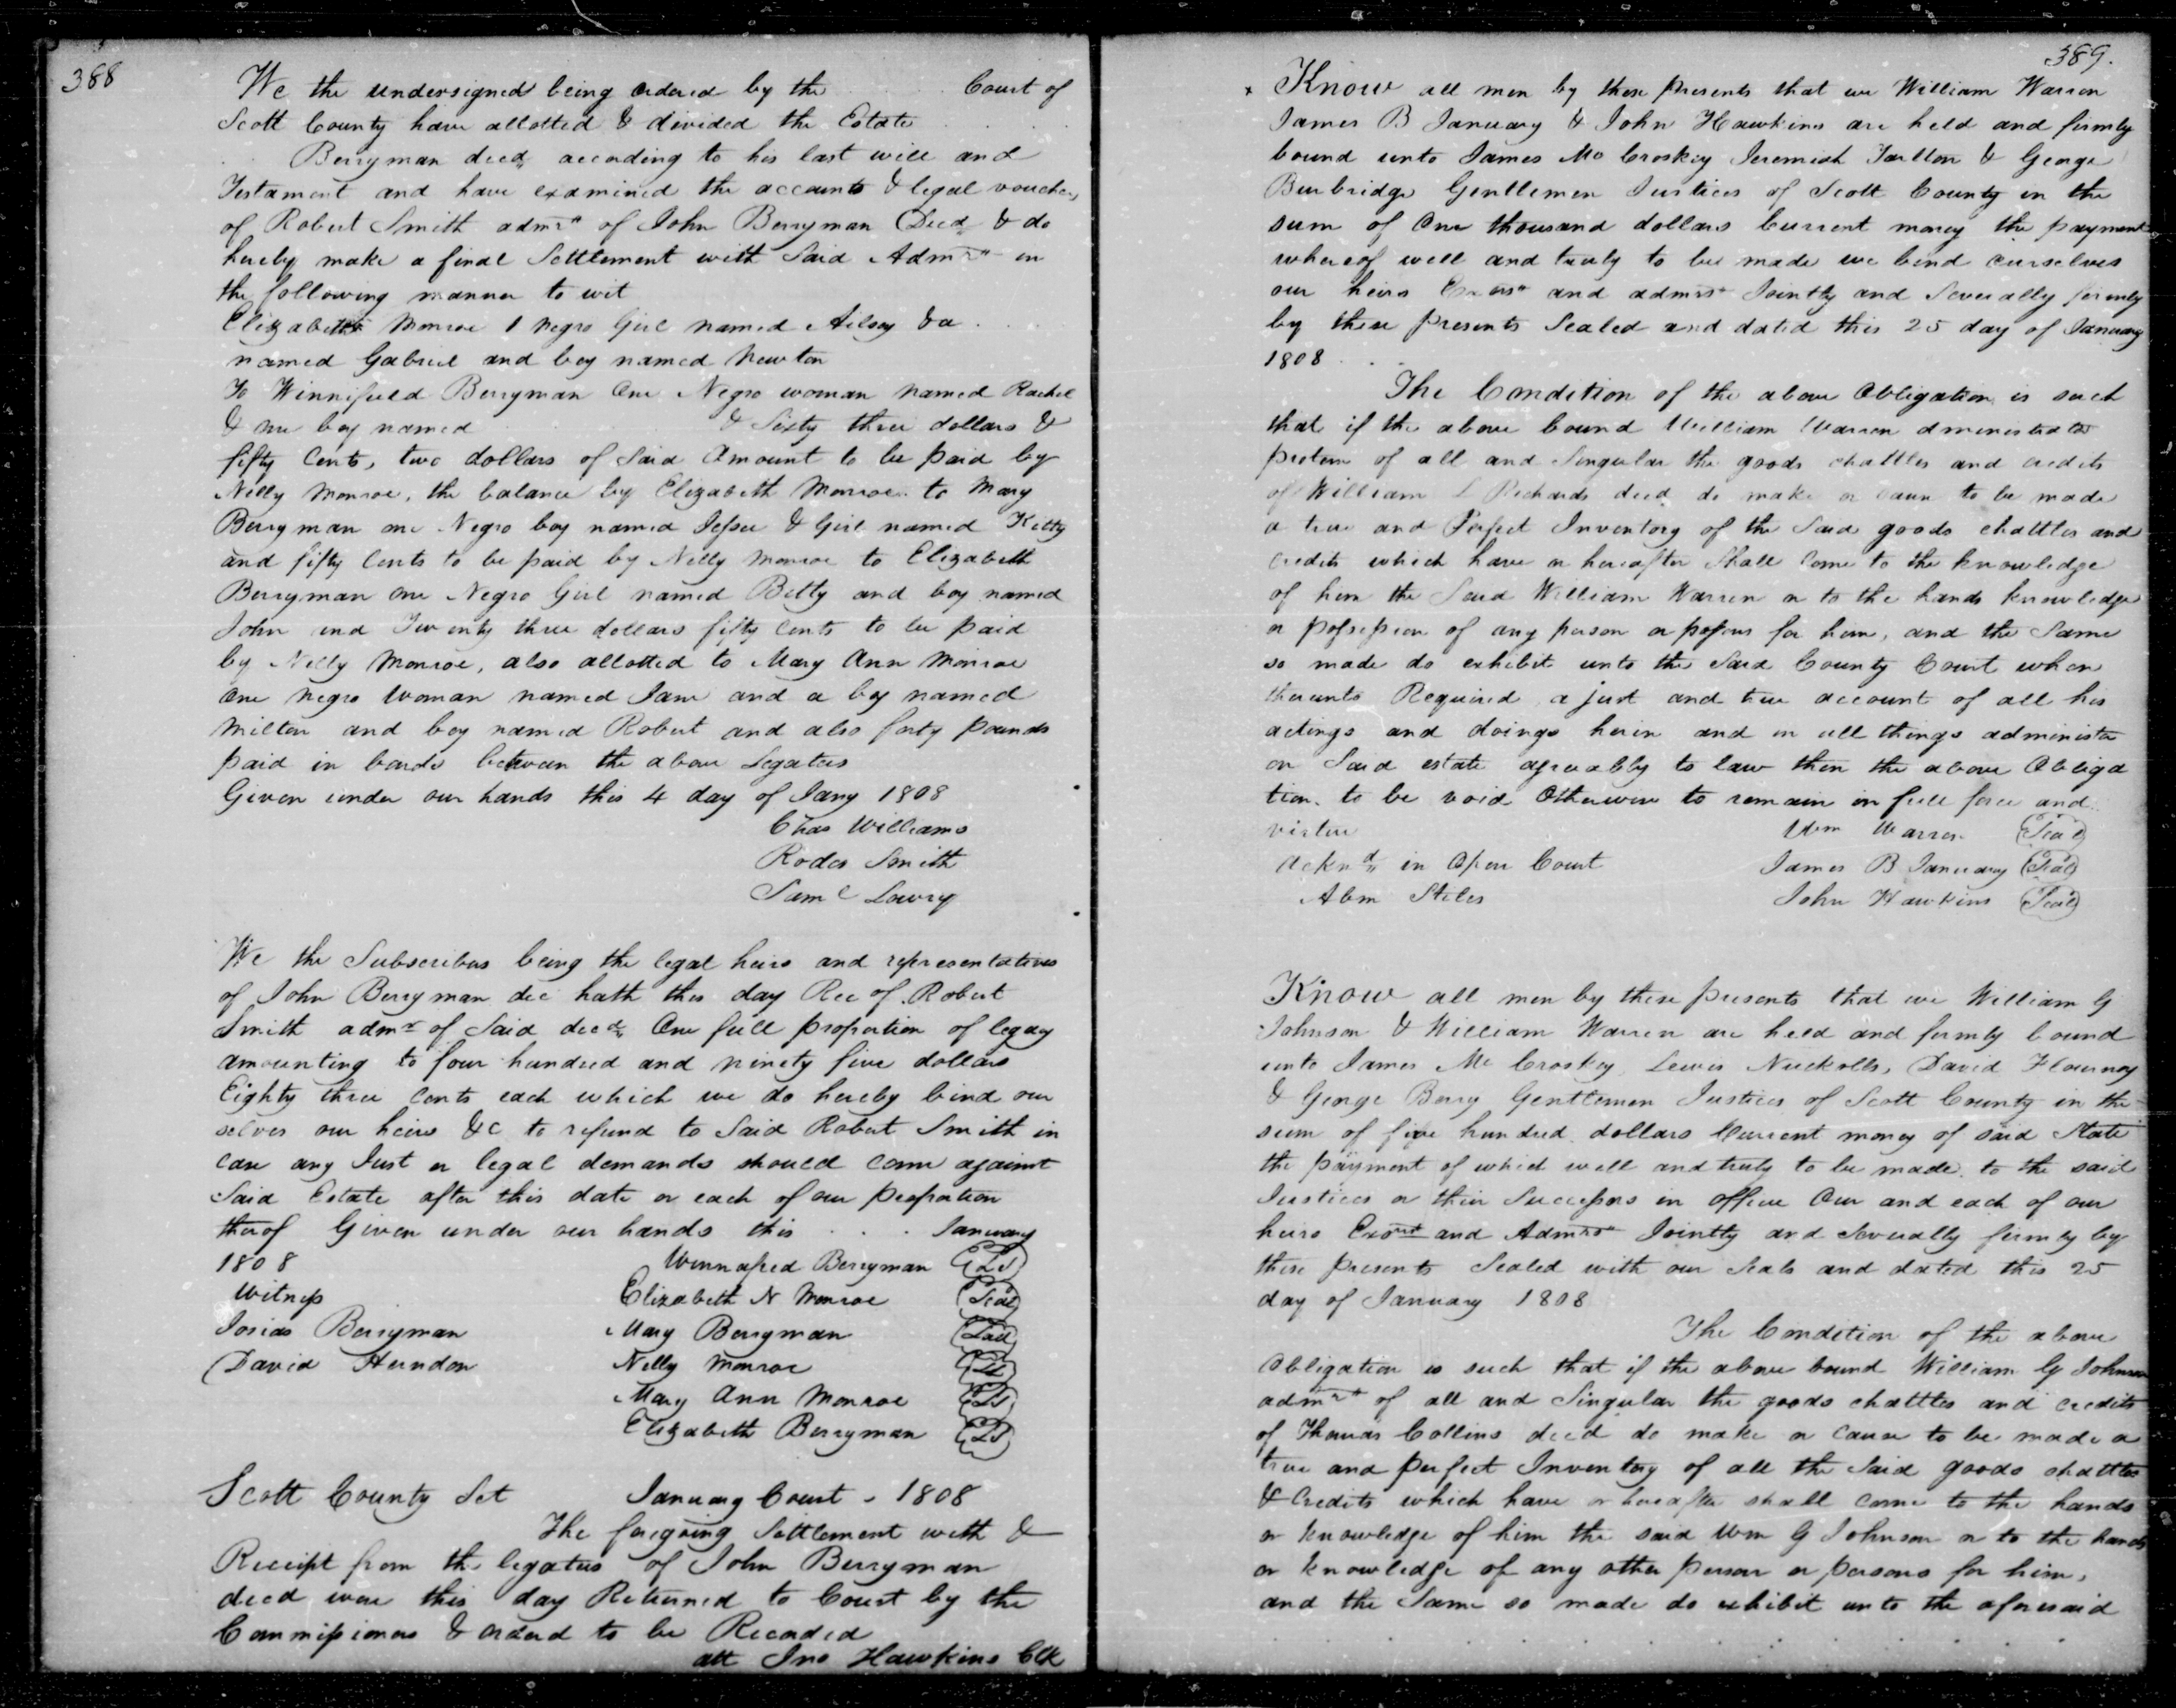 388
We the undersigned being ordered by the Court of
Scott County have allotted & divided the Estate
Berryman decd according to his last will and
Testament and have examined the accounts & legal vouchers
of Robert Smith admrs of John Berryman Decd & do
hereby make a final Settlement with Said Admrs in
the following manner to wit
Elizabeth Monroe 1 negro Girl named Ailsey & a
named Gabriel and boy named Newton
To Winnifred Berryman One Negro woman named Rachel
& one boy named & Sixty three dollars &
fifty Cents, two dollars of Said Amount to be paid by
Nelly Monroe, the balance by Elizabeth Monroe to Mary
Berryman one Negro boy named Jessee & Girl named Kitty
and fifty Cents to be paid by Nelly Monroe to Elizabeth
Berryman one Negro Girl named Betty and boy named
John and Twenty three dollars fifty Cents to be paid
by Nelly Monroe, also allotted to Mary Ann Monroe
One negro woman named Jane and a boy named
Milton and boy named Robert and also forty pounds
paid in bonds between the above Legatees
Given under our hands this 4 day of Jany 1808
Chas Williams
Rodes Smith
Saml Lowry
We the Subscribers being the legal heirs and representatives
of John Berryman dec hath this day Rec of Robert
Smith admr of Said decd One full proportion of legacy
amounting to four hundred and ninety five dollars
Eighty three Cents each which we do hereby bind our
selves our heirs &c to refund to Said Robert Smith in
case any Just or legal demands should come against
Said Estate after this date or each of our proportion
therof Given under our hands this January
1808 Winnafred Berryman LS
Witness Elizabeth N Monroe Seal
Josias Berryman Mary Berryman Seal
David Herndon Nelly Monroe LS
Mary Ann Monroe LS
Elizabeth Berryman LS
Scott County Sct January Court - 1808
The foregoing Settlement with &
Receipt from the legatees of John Berryman
decd were this day Returned to Court by the
Commissioners & ordered to be Recorded
att Jno Hawkins Clk
389.
Know all men by these presents that we William Warren
James B January & John Hawkins are held and firmly
bound unto James Mc Croskey Jeremiah Tarlton & George
Burbridge Gentlemen Justices of Scott County in the
sum of One thousand dollars Current money the payment
whereof well and truly to be made we bind ourselves
our heirs Exors and admrs Jointly and Severally firmly
by these presents Sealed and dated this 25 day of January
1808
The Condition of the above Obligation is such
that if the above bound William Warren dministrator
protem of all and Singular the goods chattles and credits
of William L Richards decd do make or caus to be made
a true and Perfect Inventory of the Said goods chattles and
Credits which have or hereafter Shall Come to the knowledge
of him the Said William Warren or to the hands knowledge
or possession of any person or persons for him, and the Same
so made do exhibit unto the Said County Court when
thereunto Required a just and true account of all his
actings and doings herin and in all things administer
on Said estate agreeably to law then the above Obliga
tion to be void Otherwise to remain in full force and
virtue Wm Warren Seal
Acknd in Open Court James B January Seal
Abm Stiles John Hawkins Seal
Know all men by these presents that we William G
Johnson & William Warren are held and firmly bound
unto James Mc Croskey Lewis Nuckolls, David Flournoy
& George Berry Gentlemen Justices of Scott County in the
sum of five hundred dollars Current money of said State
the payment of which well and truly to be made to the said
Justices or their Successors in office Our and each of our
heirs Exors and Admrs Jointly and Severally firmly by
these presents Sealed with our Seals and dated this 25
day of January 1808
The Condition of the above
Obligation is such that if the above bound William G Johnson
admr of all and Singular the goods chattles and credits
of Thomas Collins decd do make or cause to be made a
true and perfect Inventory of all the Said goods chattles
& Credits which have or hereafter shall come to the hands
or knowledge of him the said Wm G Johnson or to the hands
or knowledge of any other person or persons for him,
and the Same so made do exhibit unto the aforesaid